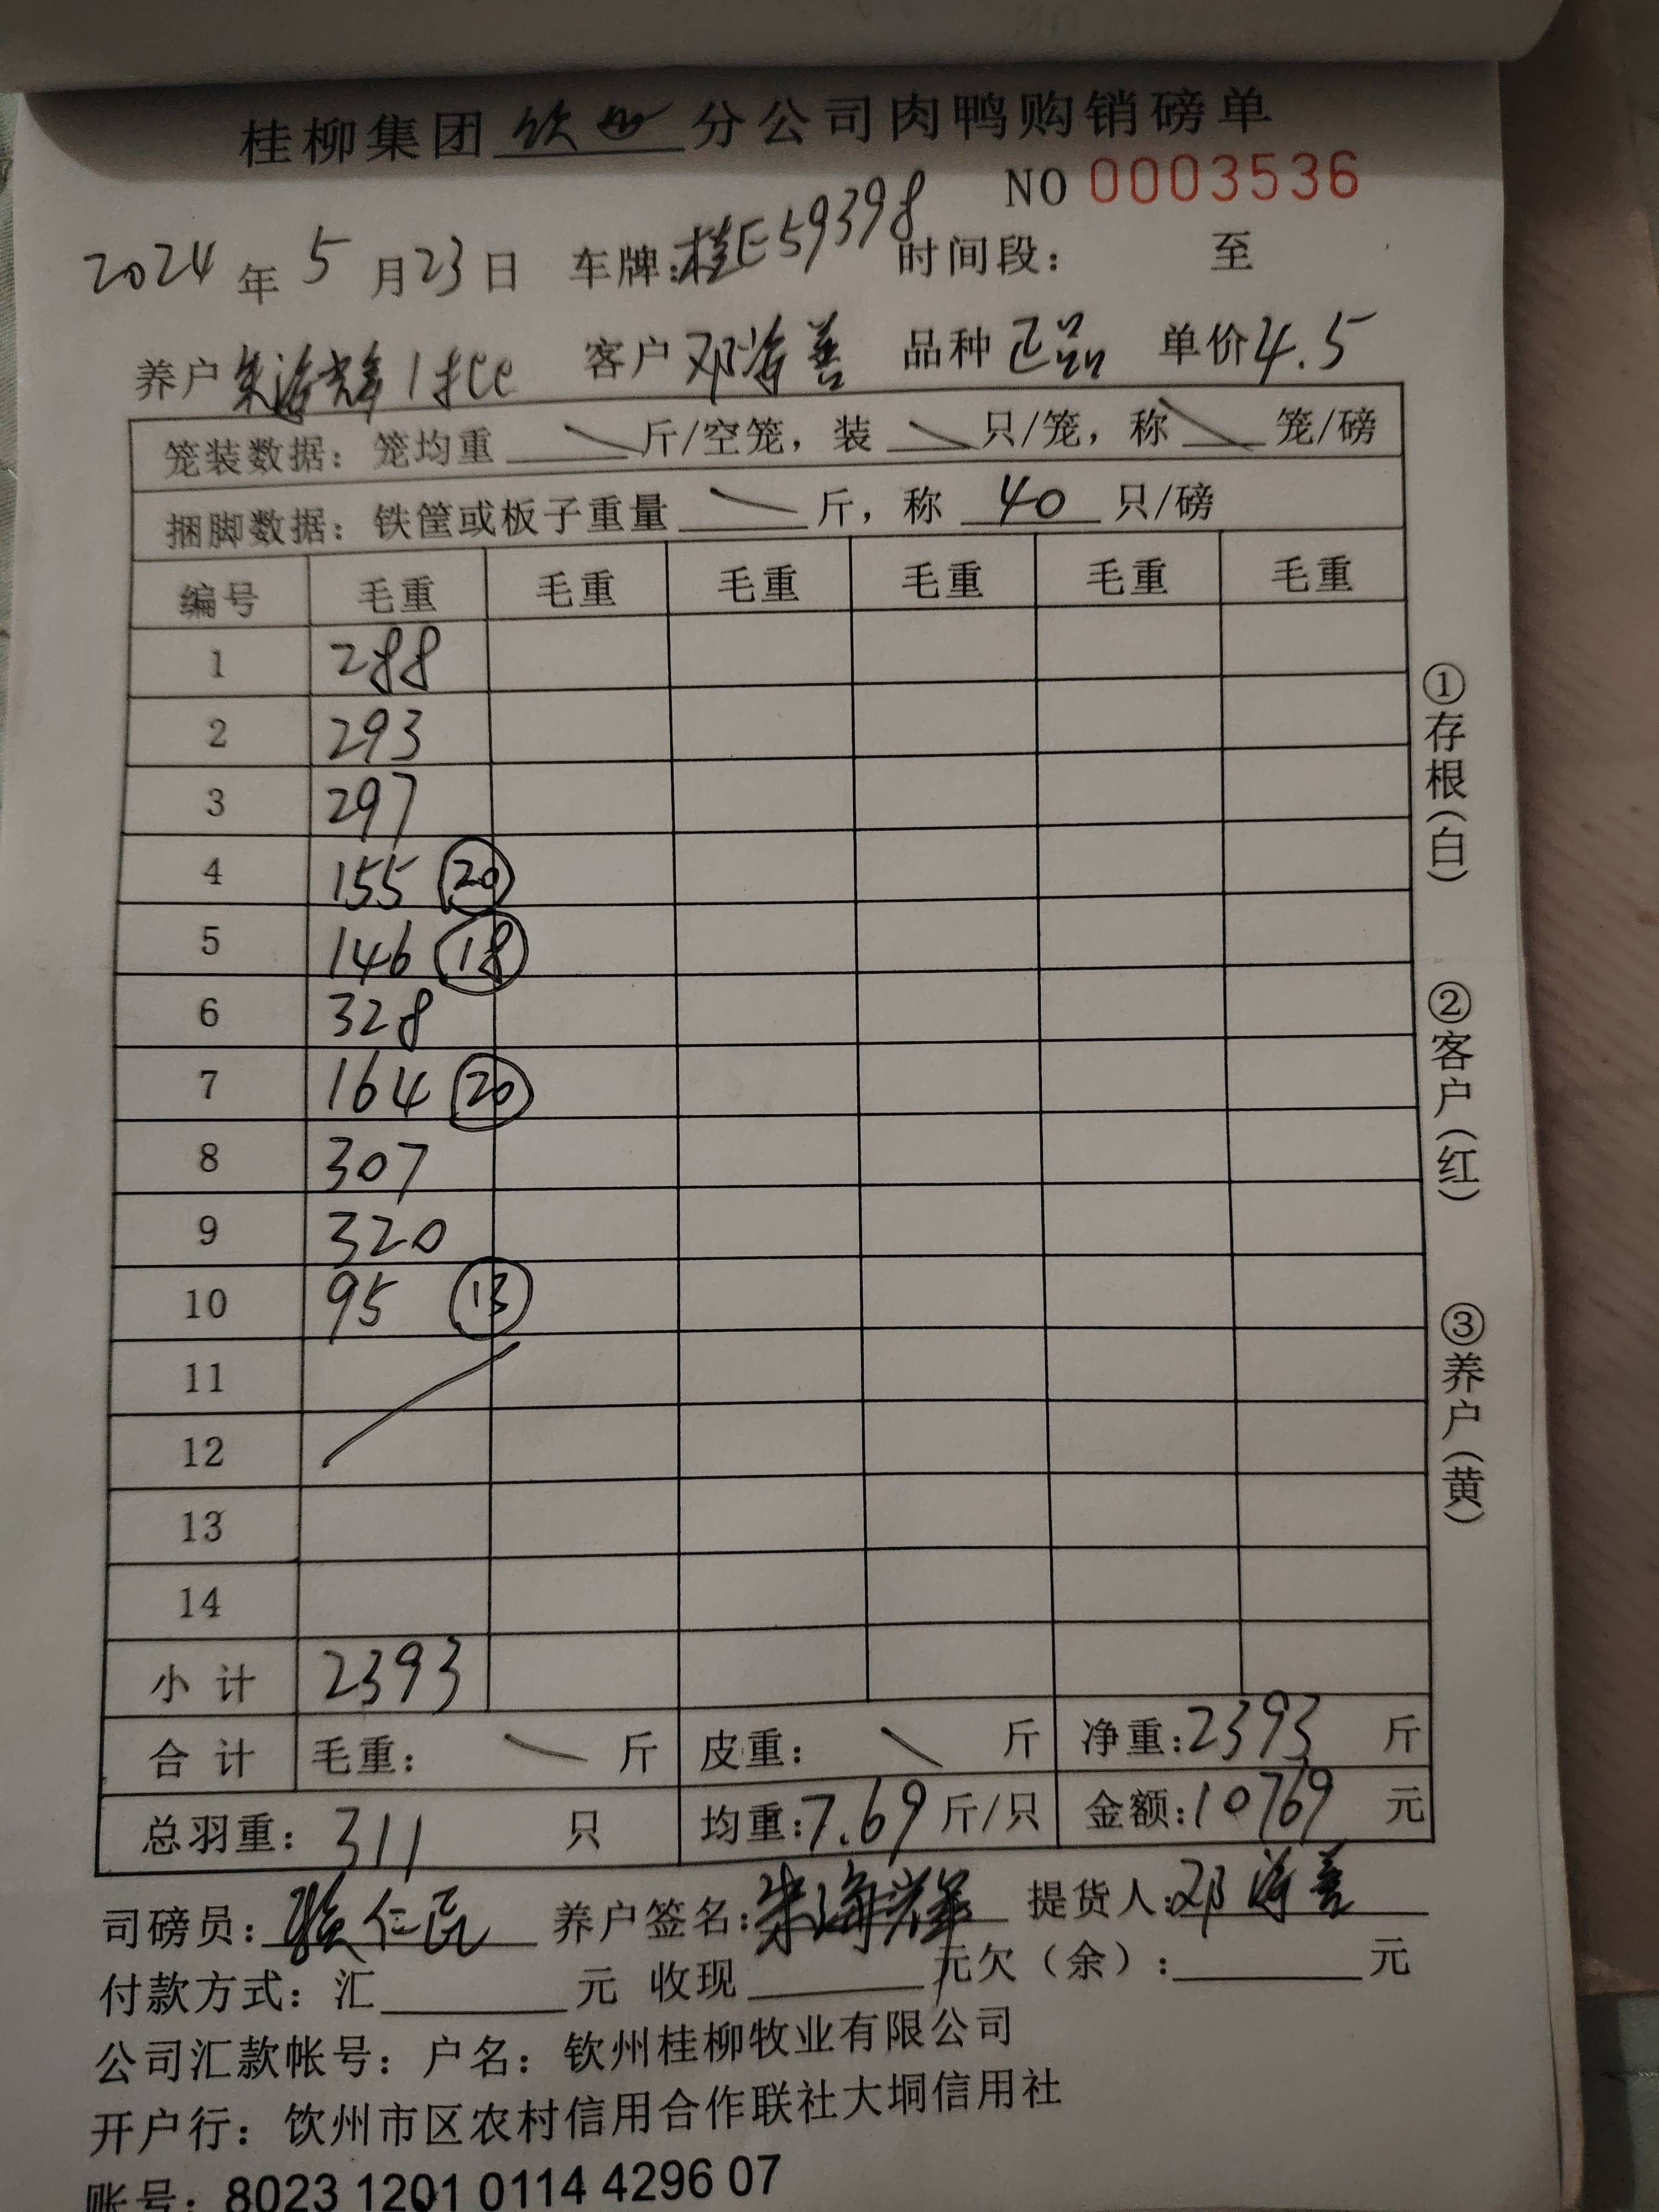 桂柳集团钦州分公司肉鸭购销磅单
NO 0003536
2024年5月23日 车牌:桂E59398 时间段: 至
养户朱海辉1批 客户邓海善 品种正品 单价4.5
笼装数据: 笼均重 斤/空笼, 装 只/笼, 称 笼/磅
捆脚数据: 铁筐或板子重量 斤, 称 40 只/磅
编号 毛重 毛重 毛重 毛重 毛重 毛重
1 288
2 293
3 297
4 155 20
5 146 18
6 328
7 164 20
8 307
9 320
10 95 13
11
12
13
14
小计 2393
合计 毛重: 斤 皮重: 斤 净重:2393 斤
总羽重: 311 只 均重:7.69斤/只 金额:10769 元
司磅员: 仁 养户签名:朱海辉 提货人:邓海善
付款方式: 汇 元 收现 元欠(余): 元
公司汇款帐号: 户名: 钦州桂柳牧业有限公司
开户行: 钦州市区农村信用合作联社大垌信用社
账号: 8023 1201 0114 4296 07
①存根(白)
②客户(红)
③养户(黄)